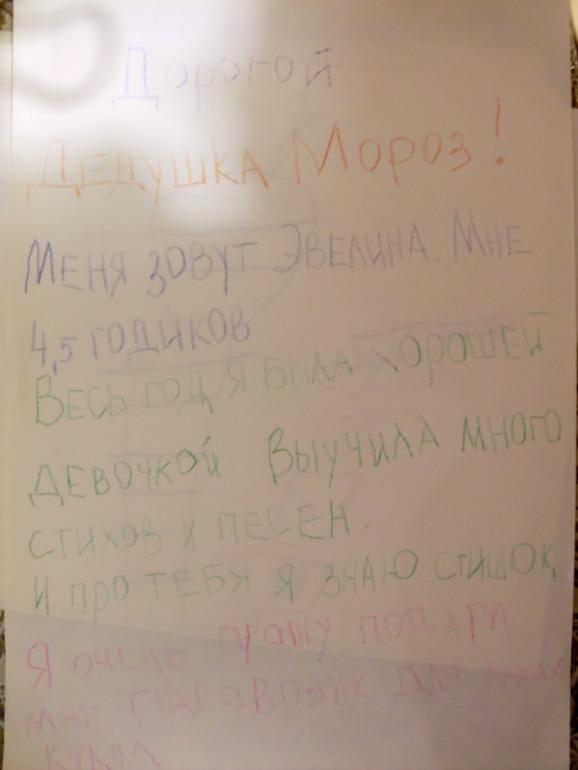 Дорогой
Дедушка Мороз!
Меня зовут Эвелина. Мне
4,5 годиков
Весь год я была хорошей
девочкой Выучила много
стихов и песен.
И про тебя я знаю стишок
Я очень прошу подари
мне паровозик для моих
кукол